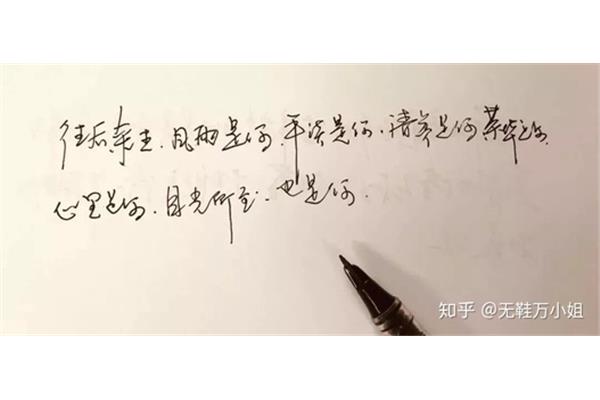 往后余生.风雨是你.平淡是你.清贫是你.荣华是你.
心里是你.目光所至.也是你.
知乎 @无鞋万小姐